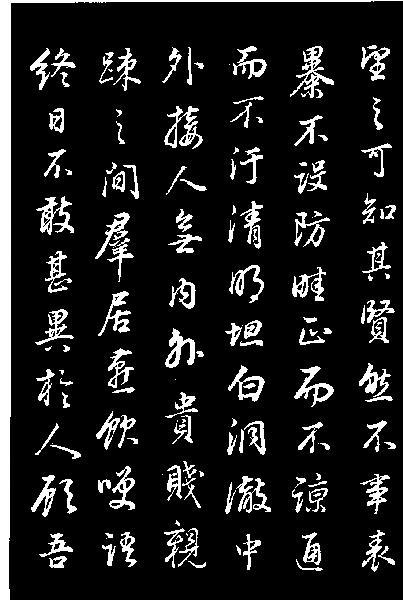 望之可知其賢然不事表
暴不設防畦正而不諒通
而不汙清明坦白洞澈中
外接人無内外貴賤親
踈之間羣居燕飲咲語
終日不敢甚異於人顧吾